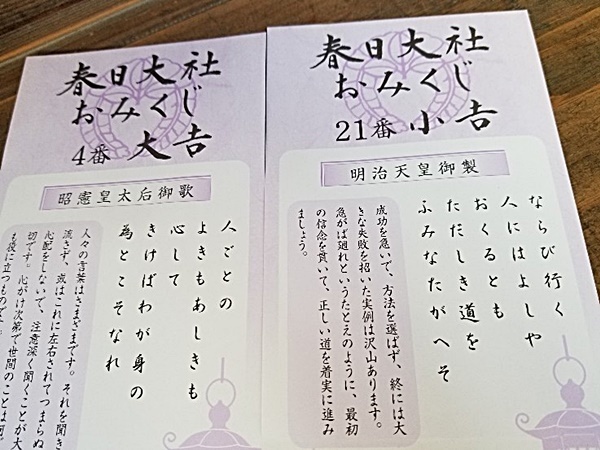 春日大社
おみくじ
4番 大吉
昭憲皇太后御歌
人ごとの
よきもあしきも
心して
きけばわが身の
為とこそなれ
人々の言葉はさまざまです。それを聞き
流さず、或はこれに左右されてつまらぬ
心配をしないで、注意深く聞くことが大
切です。心がけ次第で世間のことは何
も後に立つものです。
春日大社
おみくじ
21番 小吉
明治天皇御製
ならび行く
人にはよしや
おくるとも
ただしき道を
ふみなたがへそ
成功を急いで、方法を選ばず、終には大
きな失敗を招いた実例は沢山あります。
急がば廻れというたとえのように、最初
の信念を貫いて、正しい道を着実に進み
ましょう。